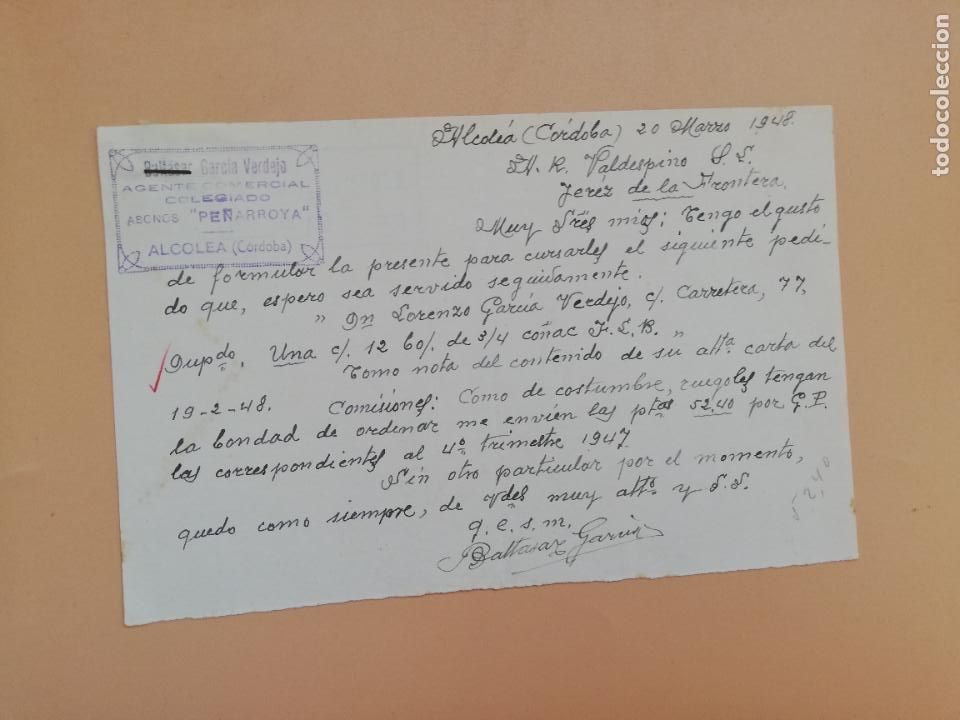 Alcolea (Córdoba) 20 Marzo 1948.
A. R. Valdespino S. L.
Jeréz de la Frontera.
Baltasar García Verdejo
AGENTE COMERCIAL
COLEGIADO
ABONOS "PEÑARROYA"
ALCOLEA (Córdoba)
Muy Sres mios: Tengo el gusto
de formular la presente para cursarles el siguiente pedi-
do que, espero sea servido seguidamente.
" Dn Lorenzo García Verdejo, c/. Carretera, 77,
Dupdo, Una c/. 12 bo/. de 3/4 coñac F.L.B. "
Tomo nota del contenido de su atta. carta del
19-2-48. Comisiones: Como de costumbre, ruegoles tengan
la bondad de ordenar me envíen las ptas 52,40 por G.P.
las correspondientes al 4º trimestre 1947.
Sin otro particular por el momento,
quedo como siempre, de Vdes muy atto. y S.S.
q. e. s. m.
Baltasar García
5240
todocoleccion